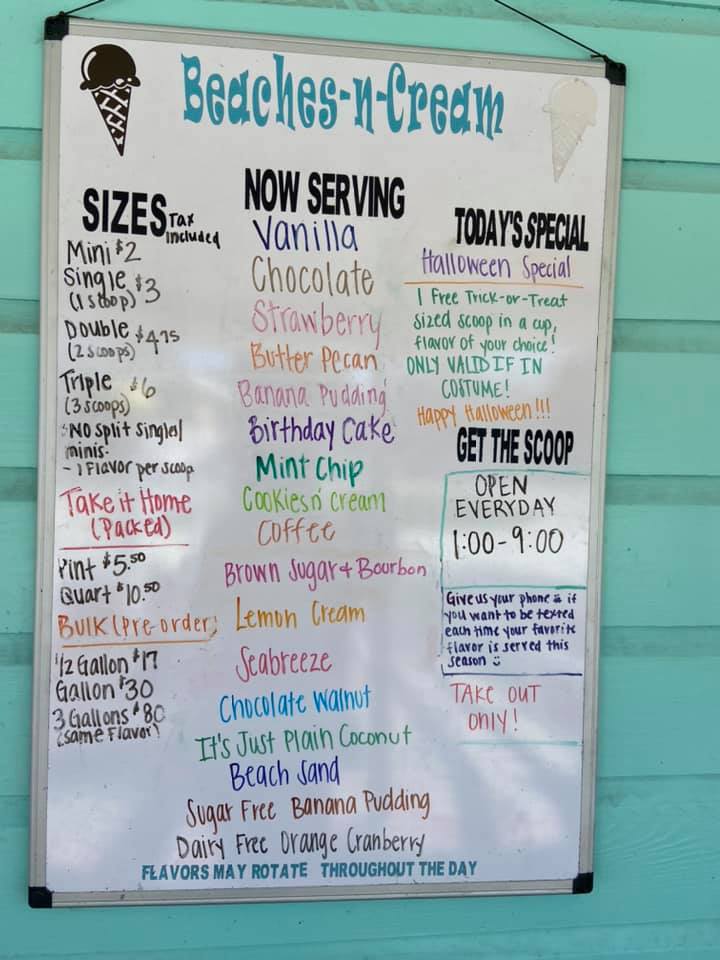 Beaches-n-Cream
SIZES Tax included
Mini $2
Single $3
(1 scoop)
Double $4.75
(2 scoops)
Triple $6
(3 scoops)
-No split singles/
minis.
- 1 Flavor per scoop
Take it Home
(Packed)
Pint $5.50
Quart $10.50
BULK (pre-order)
1/2 Gallon $17
Gallon $30
3 Gallons $80
(same Flavor)
NOW SERVING
Vanilla
Chocolate
Strawberry
Butter Pecan
Banana Pudding
Birthday Cake
Mint Chip
Cookies n' Cream
Coffee
Brown Sugar + Bourbon
Lemon Cream
Seabreeze
Chocolate Walnut
It's Just Plain Coconut
Beach Sand
Sugar Free Banana Pudding
Dairy Free Orange Cranberry
TODAY'S SPECIAL
Halloween Special
1 Free Trick-or-Treat
sized scoop in a cup,
flavor of your choice!
ONLY VALID IF IN
COSTUME!
Happy Halloween!!!
GET THE SCOOP
OPEN
EVERYDAY
1:00-9:00
Give us your phone # if
you want to be texted
each time your favorite
flavor is served this
season
TAKE OUT
ONLY!
FLAVORS MAY ROTATE THROUGHOUT THE DAY